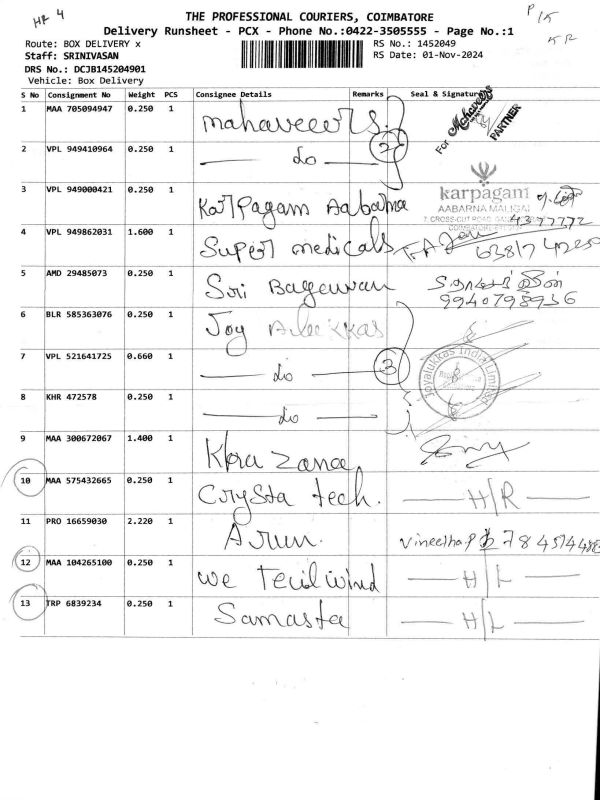 HR 4
P/K
KR
THE PROFESSIONAL COURIERS, COIMBATORE
Delivery Runsheet - PCX - Phone No.:0422-3505555 - Page No.:1
Route: BOX DELIVERY x
RS No.: 1452049
Staff: SRINIVASAN
RS Date: 01-Nov-2024
DRS No.: DCJB145204901
Vehicle: Box Delivery
S No Consignment No Weight PCS Consignee Details Remarks Seal & Signature
1 MAA 705094947 0.250 1 mahaveers For Mahaveers PARTNER
2 VPL 949410964 0.250 1 do 2
3 VPL 949000421 0.250 1 Karpagam Aabarna karpagam
AABARNA MALIGAI
4 VPL 949862031 1.600 1 Super medicals
5 AMD 29485073 0.250 1 Sri Bagewan 9940798936
6 BLR 585363076 0.250 1 Joy Alukkas
7 VPL 521641725 0.660 1 do 3 Joyalukkas India Limited
8 KHR 472578 0.250 1 do
9 MAA 300672067 1.400 1
10 MAA 575432665 0.250 1 Crysta tech. H/R
11 PRO 16659030 2.220 1 Arun. Vineetha
12 MAA 104265100 0.250 1 we H/L
13 TRP 6839234 0.250 1 Samasta H/L